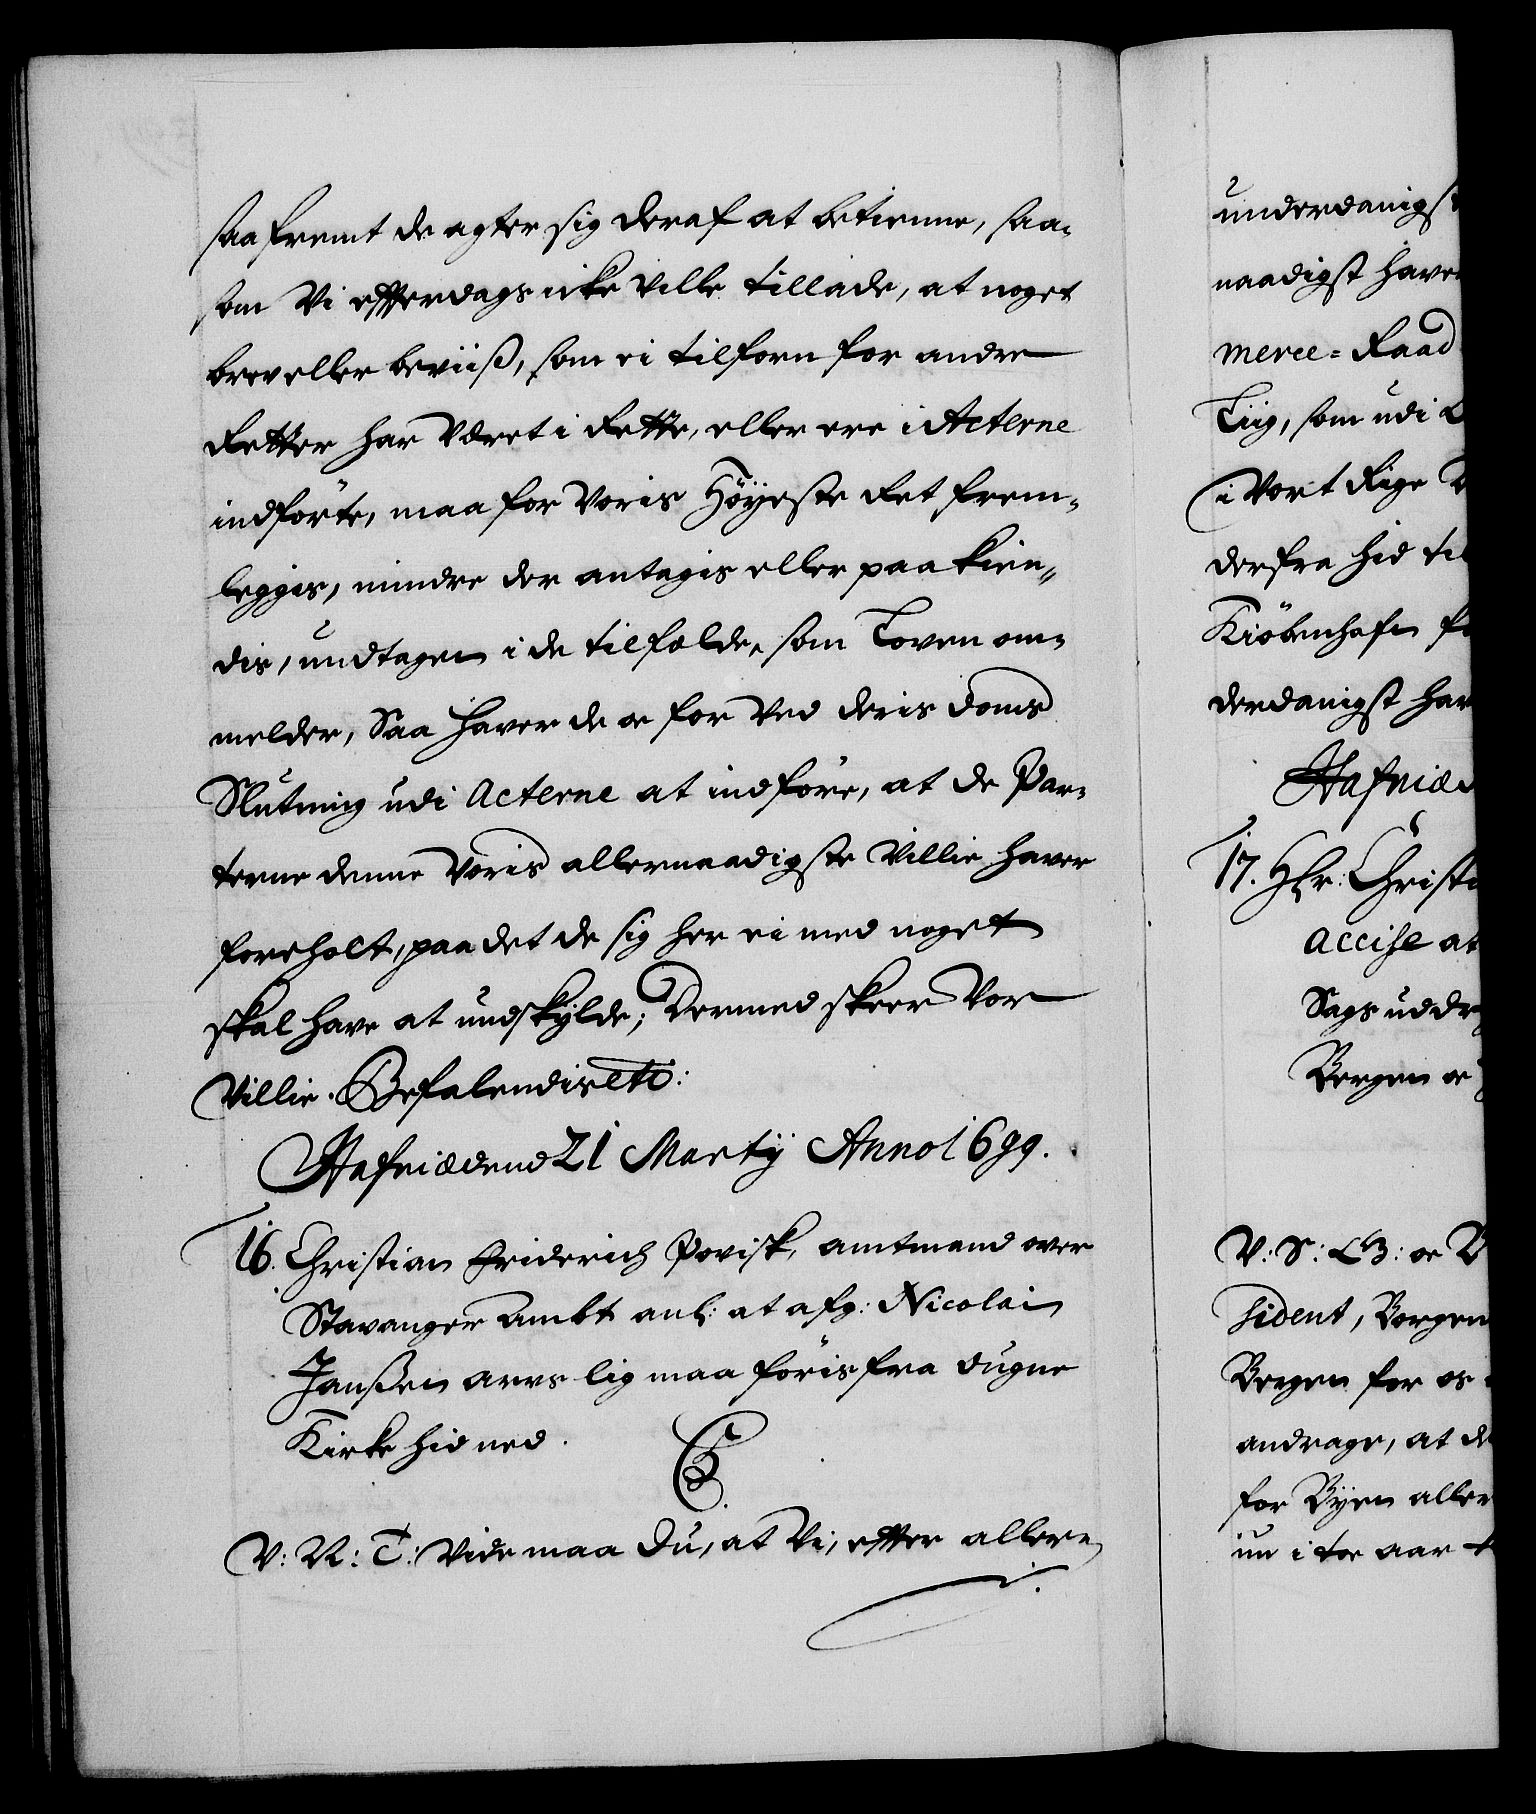 saa fremt de agter sig deraf at betienne, saa-
som Vi efferdags icke ville tillade, at noget
brev eller beviiß, som ei tilforn for andre
Retter har været i Rette, eller ere i Acterne
indförte, maa for Voris Höyeste Ret frem-
leggis, mindre der antagis eller paakien-
dis, undtagen i de tilfælde, som Loven om-
melder, Saa haver de oc for Ved deris Doms
Slutning udi Acterne at indföre, at de Par-
terne denne Voris allernaadigste Villie haver
foreholt, paa det de sig her ei med noget
skal have at undskylde; Dermed skeer Vor
Villie. Befalendis etc:
Hafniæ dend 21 Martÿ Anno 1699.
16. Christian Friderich Povisk, amtmand over
Stavanger Ambt anl: at afg: Nicolai
Janßen arvs lig maa föris fra
Kirke hid ned.
C5.
V: N: T: Vide maa Du, at Vi, effter allern-
underdanigst
naadigst have
merce-Raad
Liig, som udi
i Vort Rige
derfra hid til
Kiöbenhafn
derdanigst hav
Hafniæ d
17. Hr: Christi
Accise at
Sags uddr
Bergen oc
V: S: C5: oc B
sident, Borgem
Bergen for os
andrage, at de
for Byen aller
nu i toe aar